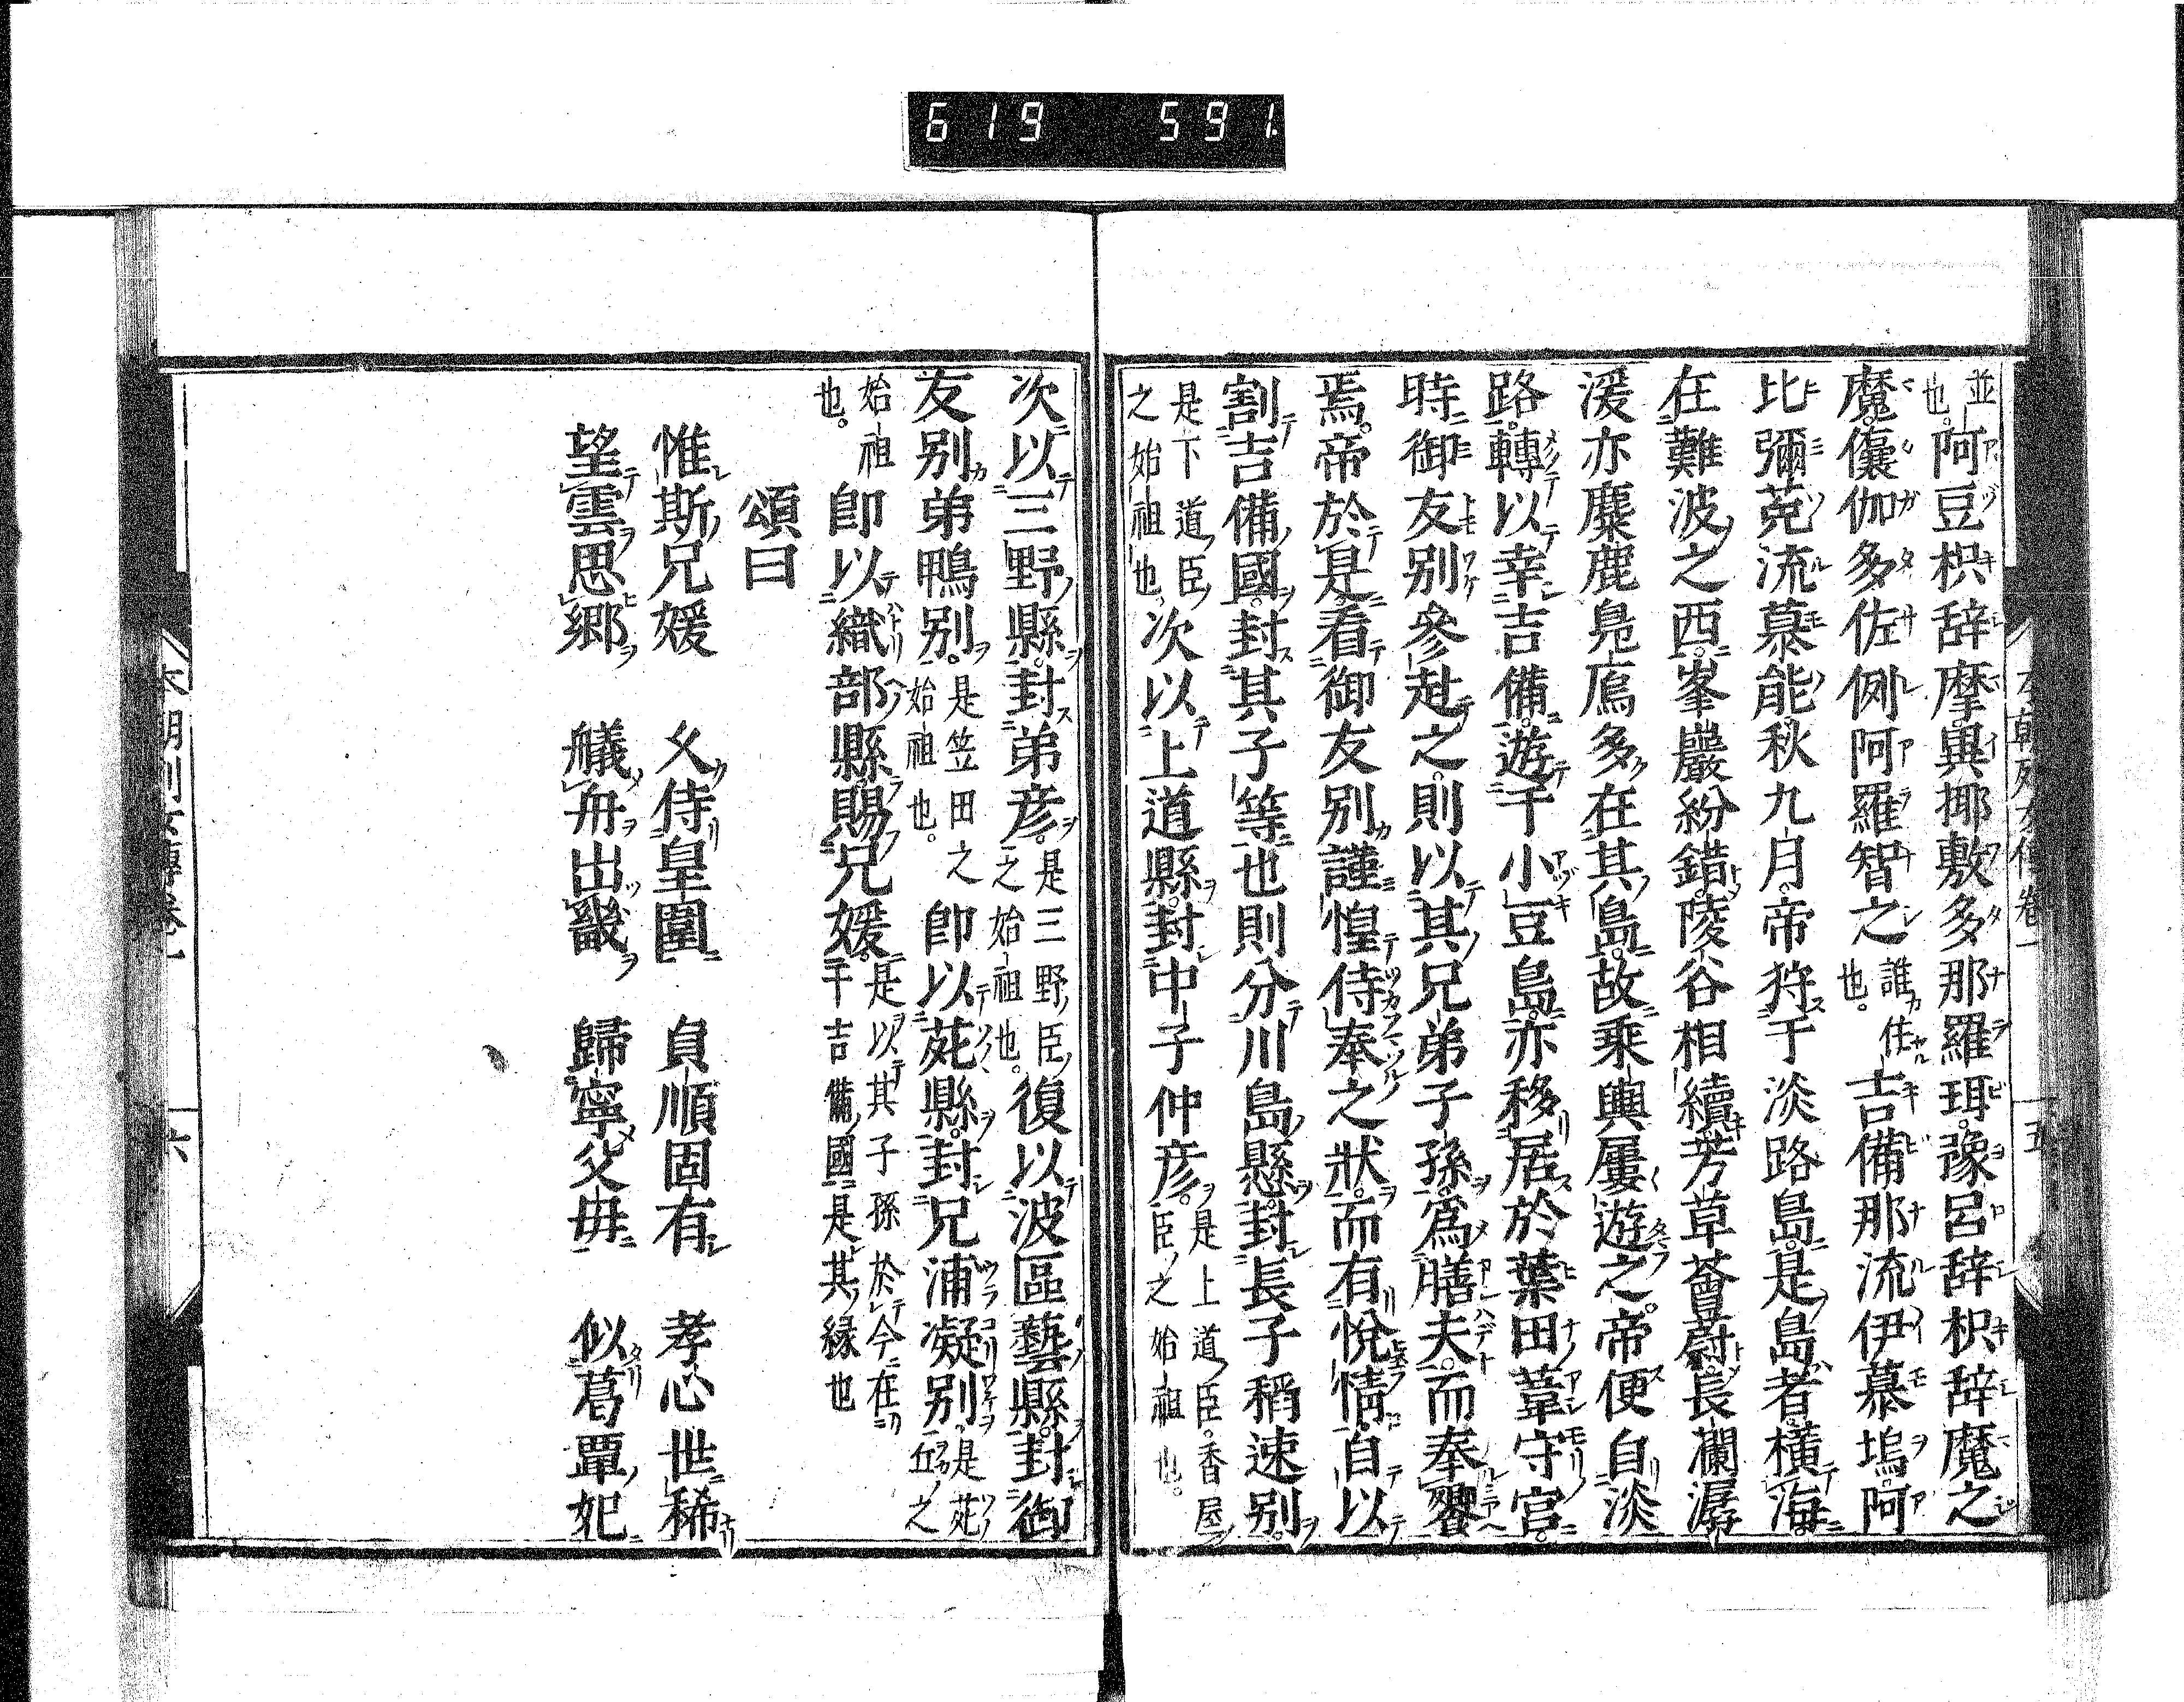 619 591
並也。阿豆枳辞摩。異揶敷多那羅珥。豫呂辞枳辞魔之
魔。儴伽多佐例阿羅智之誰カ任也。吉備那流伊慕塢。阿
比彌菟流慕能。秋九月。帝狩于淡路島。是島者。横海。
在難波之西。峯巖紛錯。陵谷相續。芳草薈蔚。長瀾潺
湲。亦麋鹿鳧鴈多在其島。故乘輿屢遊之。帝便自淡
路。轉以幸吉備。遊于小豆島。亦移居於葉田葦守宮。
時御友別參赴之。則以其兄弟子孫。爲膳夫。而奉饗
焉。帝於是。看御友別謹惶侍奉之狀。而有悅情。自以
割吉備國。封其子等也則分川島懸。封長子稻速別。
是下道臣之始祖也。次以上道縣。封中子仲彦。是上道臣。香屋臣之始祖也。
次以三野縣。封弟彦。是三野臣之始祖也。復以波區藝縣。封御
友別弟鴨別。是笠田之始祖也。即以苑縣。封兄浦凝別。是苑丘之
始祖也。即以織部縣。賜兄媛。是以其子孫於今在于吉備國是其縁也
頌曰
惟斯兄媛 久侍皇圍 貞順固有 孝心世稀
望雲思郷 艤舟出畿 歸寧父毋 似葛覃妃
本朝列女傳卷一 五
本朝列女傳卷一 六